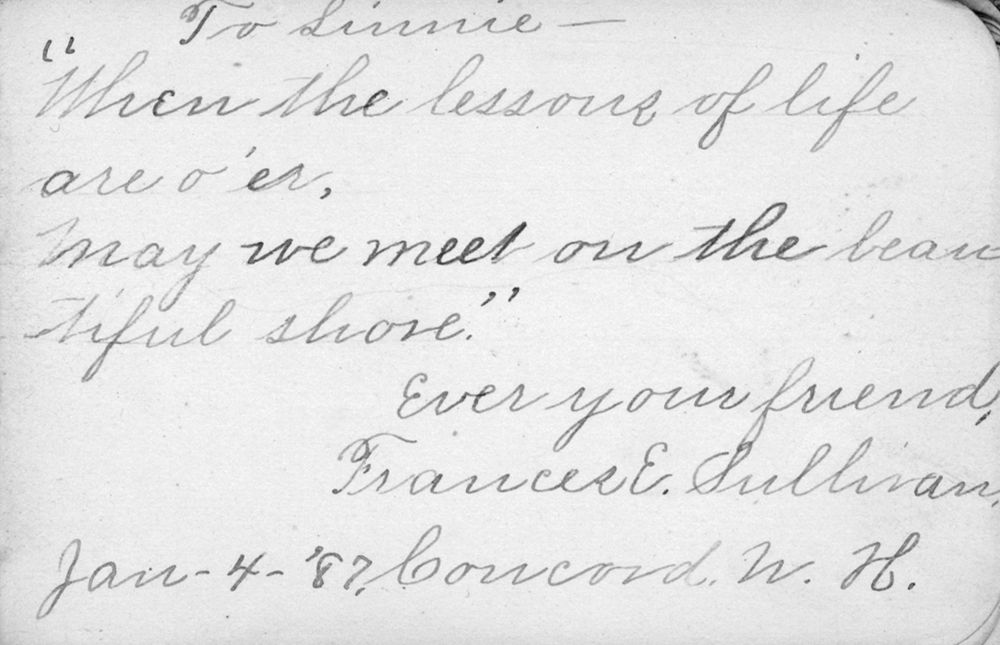 To Linnie —
"When the lessons of life
are o'er,
May we meet on the beau
tiful shore."
Ever your friend,
Frances E. Sullivan,
Jan - 4 - '87, Concord. N. H.